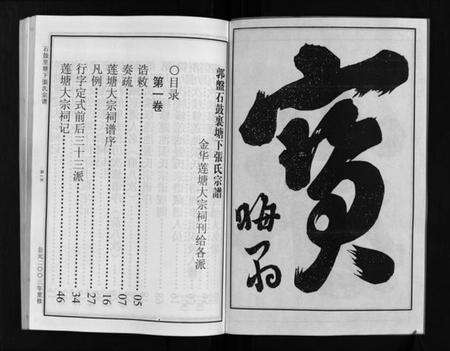 寶
晦翁
郭盤石鼓裏塘下張氏宗譜
金华莲塘大宗祠刊给各派
〇目录
第一卷
诰敕……05
奏疏……07
莲塘大宗祠谱序……16
凡例……27
行字定式前后三十三派……34
莲塘大宗祠记……46
石鼓里塘下張氏宗谱
公元二〇〇二年重修